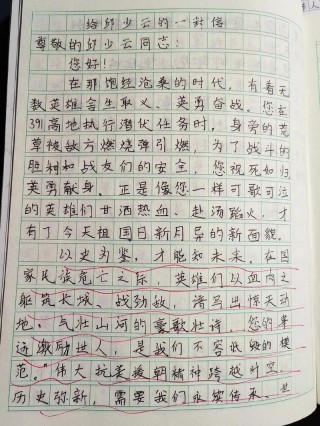 给邱少云的一封信
尊敬的邱少云同志：
您好！
在那饱经沧桑的时代，有着无
数英雄舍生取义、英勇奋战。您在
391高地执行潜伏任务时，身旁的荒
草被敌方燃烧弹引燃，为了战斗的
胜利和战友们的安全，您视死如归
英勇献身。正是像您一样可歌可泣
的英雄们甘洒热血、赴汤蹈火，才
有了今天祖国日新月异的新面貌。
以史为鉴，才能知未来。在国
家民族危亡之际，英雄们以血肉之
躯筑长城，战劲敌，谱写出惊天动
地、气壮山河的豪歌壮诗。您的事
迹激励世人，是我们不容诋毁的模
范。伟大抗美援朝精神跨越时空、
历史弥新，需要我们永续传承、世
人